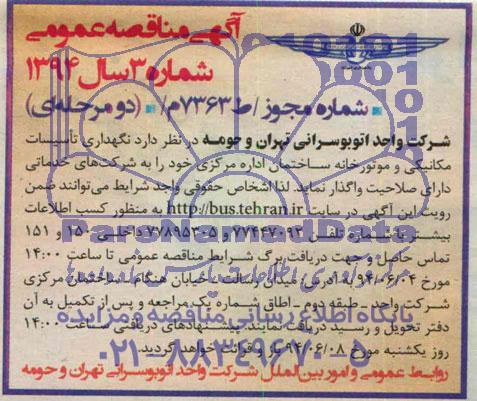 آگهی مناقصه عمومی
شماره ۳ سال ۱۳۹۴
شماره مجوز /ط۷۳۶۳م/ (دو مرحله‌ای)
شرکت واحد اتوبوسرانی تهران و حومه در نظر دارد نگهداری تأسیسات
مکانیکی و موتورخانه ساختمان اداره مرکزی خود را به شرکت‌های خدماتی
دارای صلاحیت واگذار نماید. لذا اشخاص حقوقی واجد شرایط می‌توانند ضمن
رویت این آگهی در سایت http://bus.tehran.ir به منظور کسب اطلاعات
بیشتر با شماره تلفن ۷۷۴۴۷۰۹۳ و ۷۷۸۹۵۳۰۵ داخلی ۱۵۰ و ۱۵۱
تماس حاصل و جهت دریافت برگ شرایط مناقصه عمومی تا ساعت ۱۴:۰۰
مورخ ۹۴/۰۶/۰۴ به آدرس: میدان رسالت - خیابان هنگام - ساختمان مرکزی
شرکت واحد - طبقه دوم - اطاق شماره یک مراجعه و پس از تکمیل به آن
دفتر تحویل و رسید دریافت نمایند. پیشنهادهای دریافتی ساعت ۱۴:۰۰
روز یکشنبه مورخ ۹۴/۰۶/۰۸ باز و قرائت خواهد گردید.
روابط عمومی و امور بین‌الملل شرکت واحد اتوبوسرانی تهران و حومه
ParsNamadData
پایگاه اطلاع رسانی مناقصه و مزایده
۰۲۱-۸۸۳۴۹۶۷۰-۵